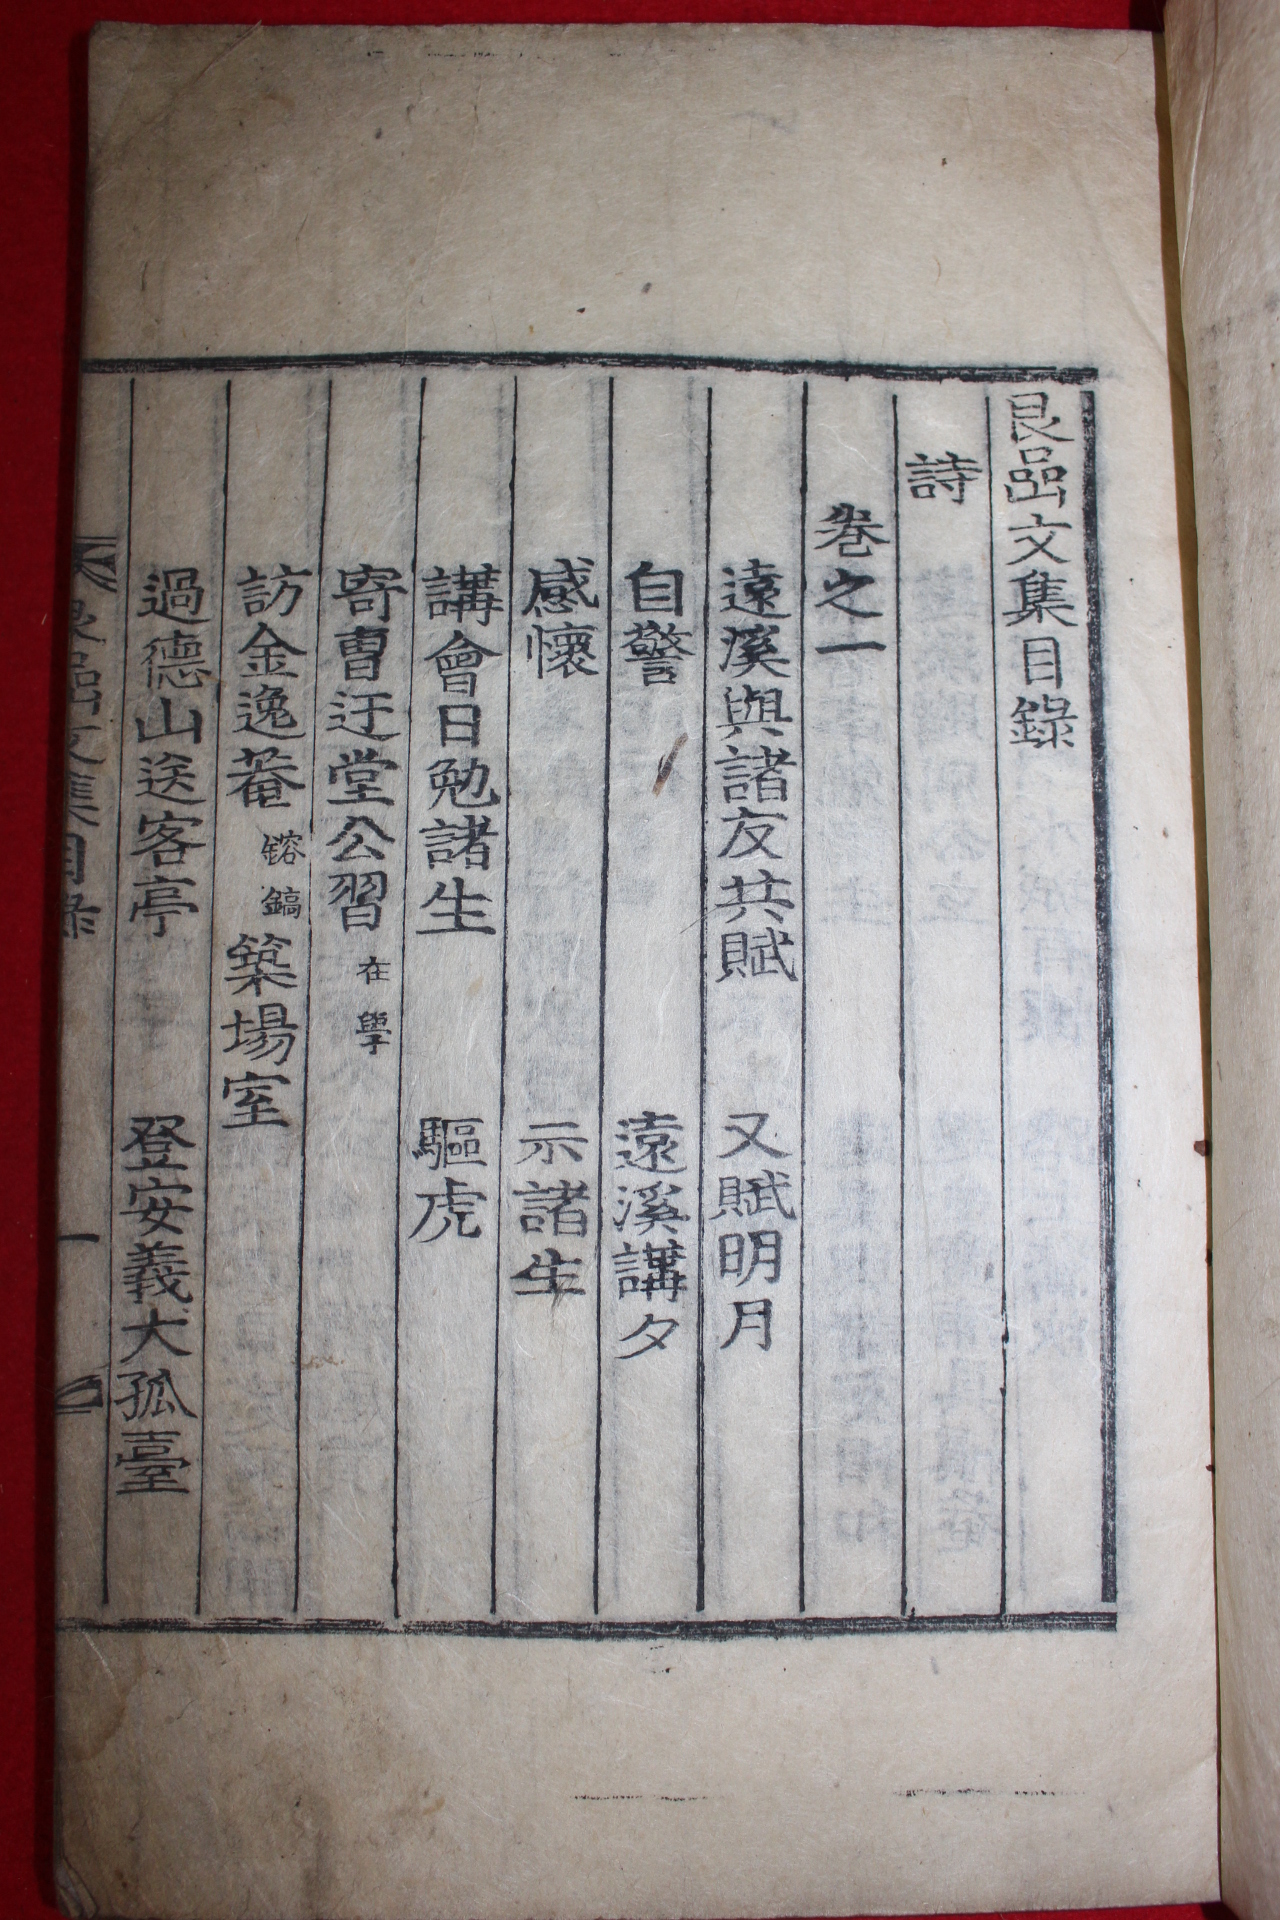 艮嵒文集目錄
詩
卷之一
遠溪與諸友共賦 又賦明月
自警 遠溪講夕
感懷 示諸生
講會日勉諸生 驅虎
寄曺迂堂公習在學
訪金逸菴鎔鎬築場室
過德山送客亭 登安義犬孤臺
艮嵒文集目錄 一